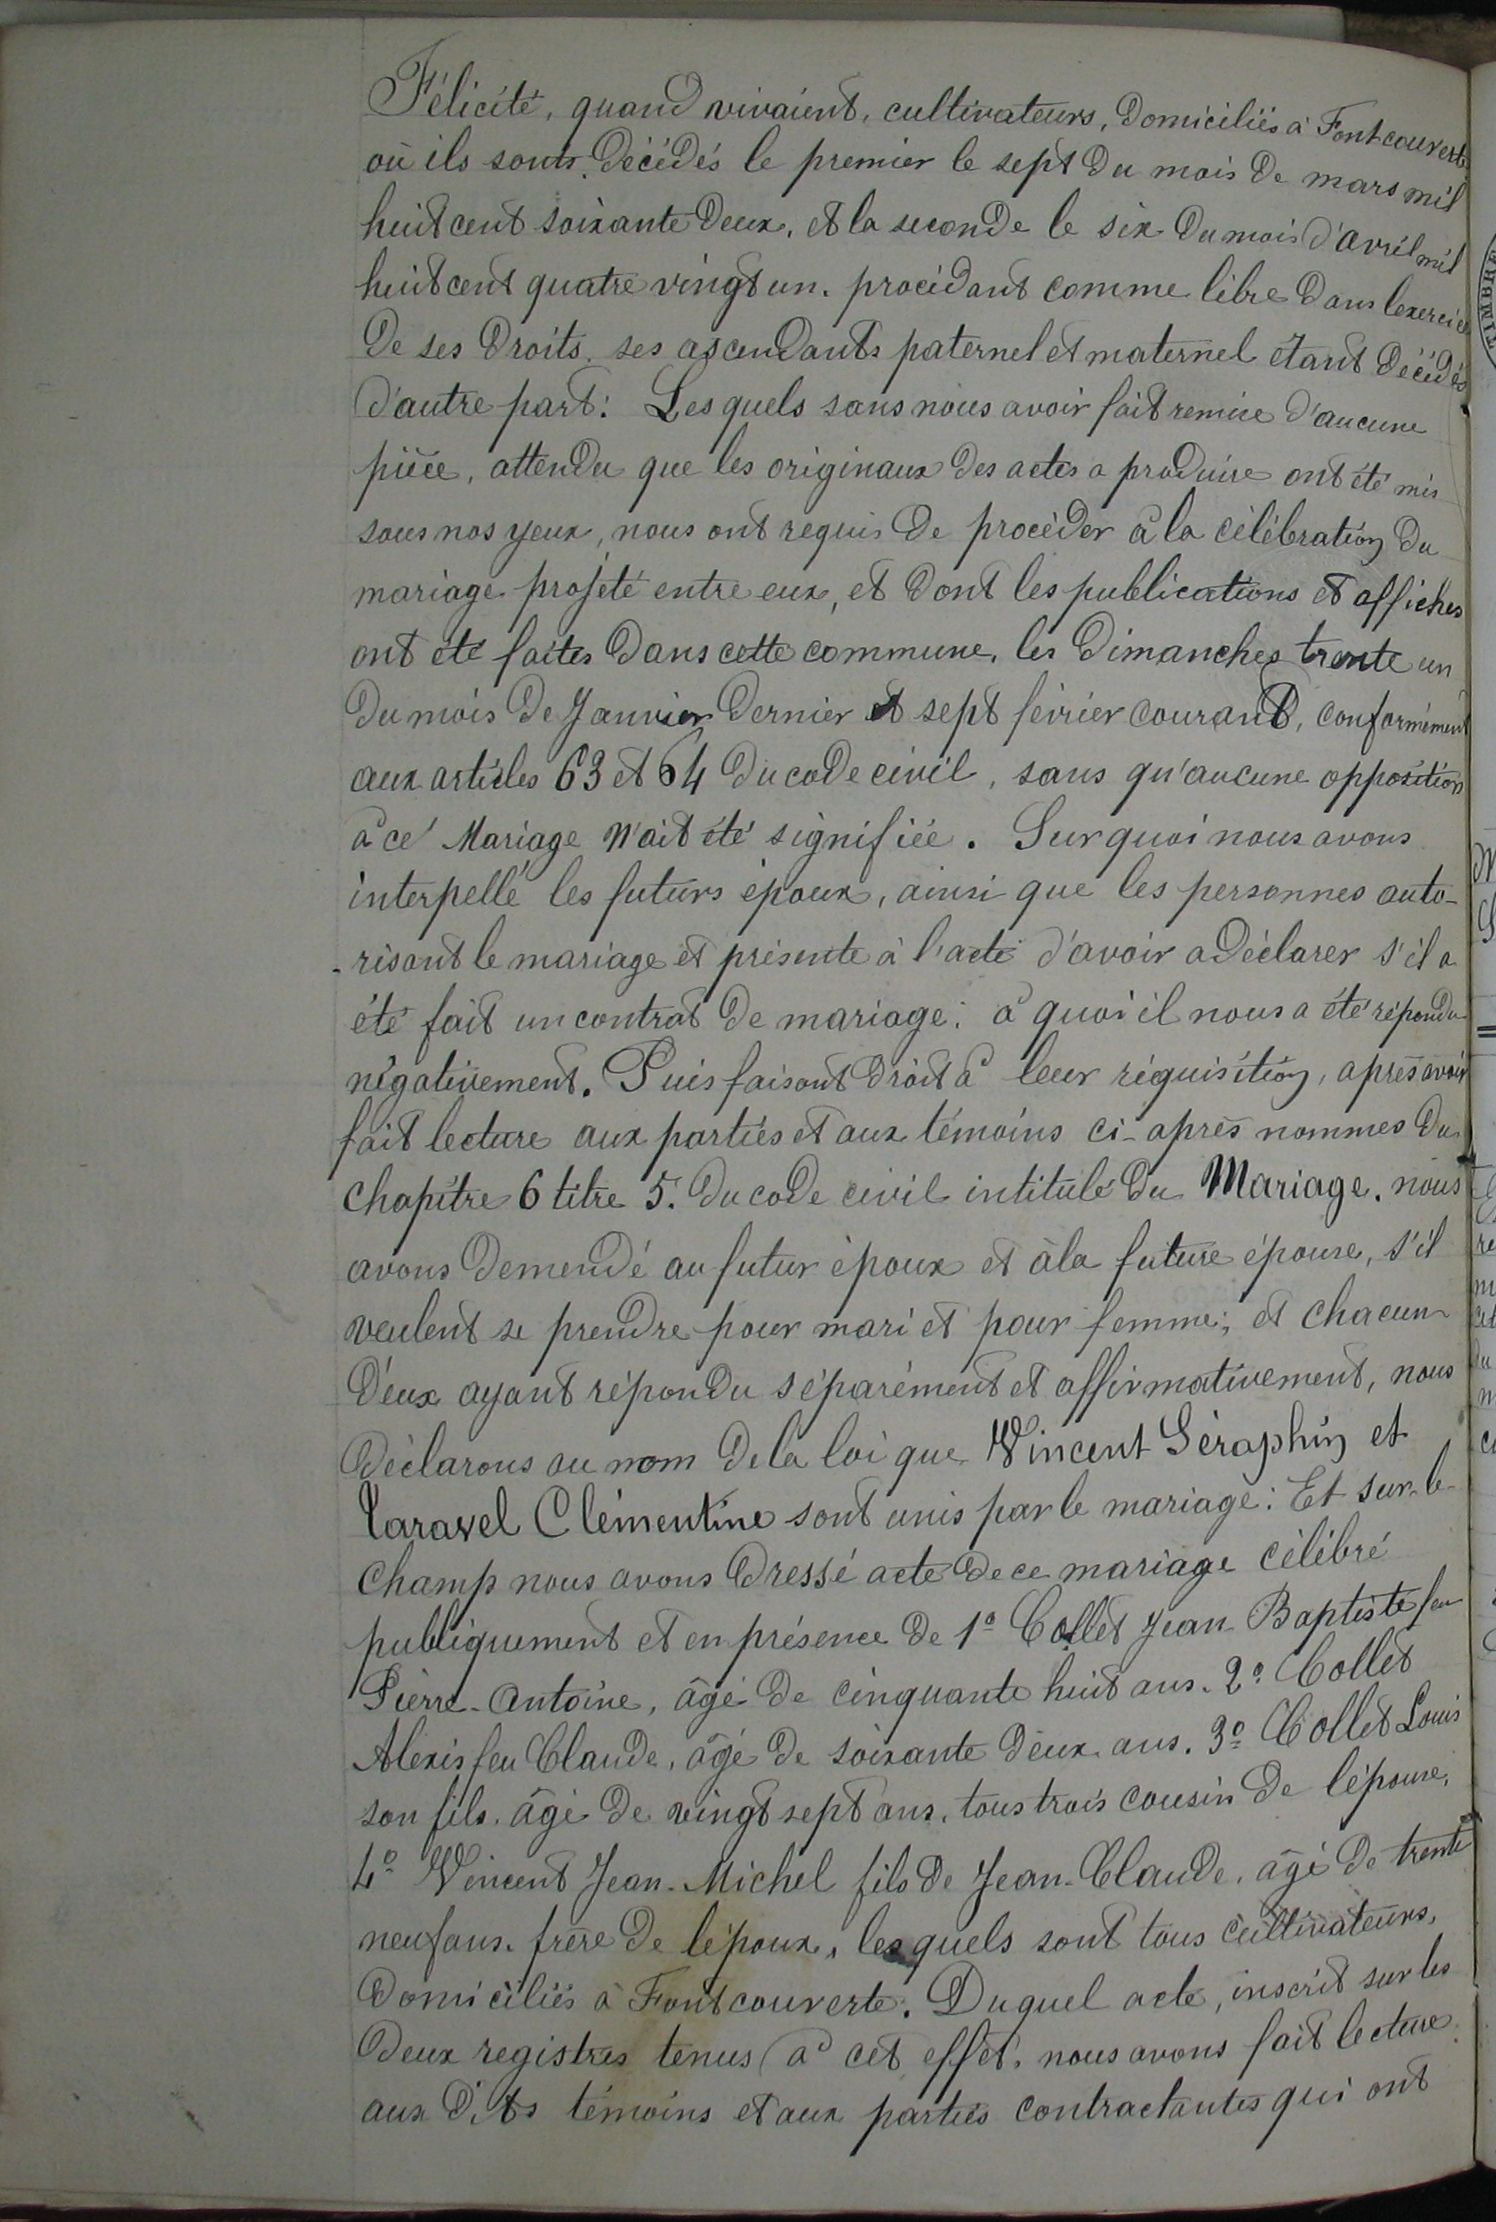 Félicité, quand vivaient, cultivateurs, domiciliés à Fontcouverte
où ils sonts décédés le premier le sept du mois de mars mil
huit cent soixante deux, et la seconde le six du mois d'avril mil
huit cent quatre vingt un. procédant comme libre dans lexercice
de ses droits. ses ascendants paternel et maternel étant décédés
d'autre part: Lesquels sans nous avoir fait remise d'aucune
pièce, attendu que les originaux des actes a produire ont été mis
sous nos yeux, nous ont requis de procéder à la célébration du
mariage projété entre eux, et dont les publications et affiches
ont été faites dans cette commune, les Dimanches trente un
du mois de Janvier dernier et sept février courant, conformément
aux articles 63 et 64 du code civil, sans qu'aucune opposition
à ce Mariage n'ait été signifiée. Sur quoi nous avons
interpellé les futurs époux, ainsi que les personnes auto-
-risant le mariage et présente à l'acte d'avoir a déclarer s'il a
été fait un contrat de mariage: à quoi il nous a été répondu
négativement. Puis faisant droit à leur réquisition, après avoir
fait lecture aux parties et aux témoins ci-après nommes du
chapitre 6 titre 5. du code civil intitulé du Mariage. nous
avons demendé au futur époux et à la future épouse, s'il
veulent se prendre pour mari et pour femme; et chacun
d'eux ayant répondu séparément et affirmativement, nous
déclarons au nom de la loi que Vincent Séraphin et
Taravel Clémentine sont unis par le mariage: Et sur-le-
champ nous avons dressé acte de ce mariage célébré
publiquement et en présence de 1º Collet Jean-Baptiste feu
Pierre-Antoine, âgé de cinquante huit ans. 2º Collet
Alexis feu Claude, âgé de soixante deux ans. 3º Collet Louis
son fils, âgé de vingt sept ans, tous trois cousin de lépouse,
4º Vincent Jean-Michel fils de Jean-Claude, âgé de trente
neuf ans. frère de lépoux, lesquels sont tous cultivateurs,
domiciliés à Fontcouverte. Duquel acte, inscrit sur les
deux registres tenus à cet effet, nous avons fait lecture
aux dits témoins et aux parties contractantes qui ont